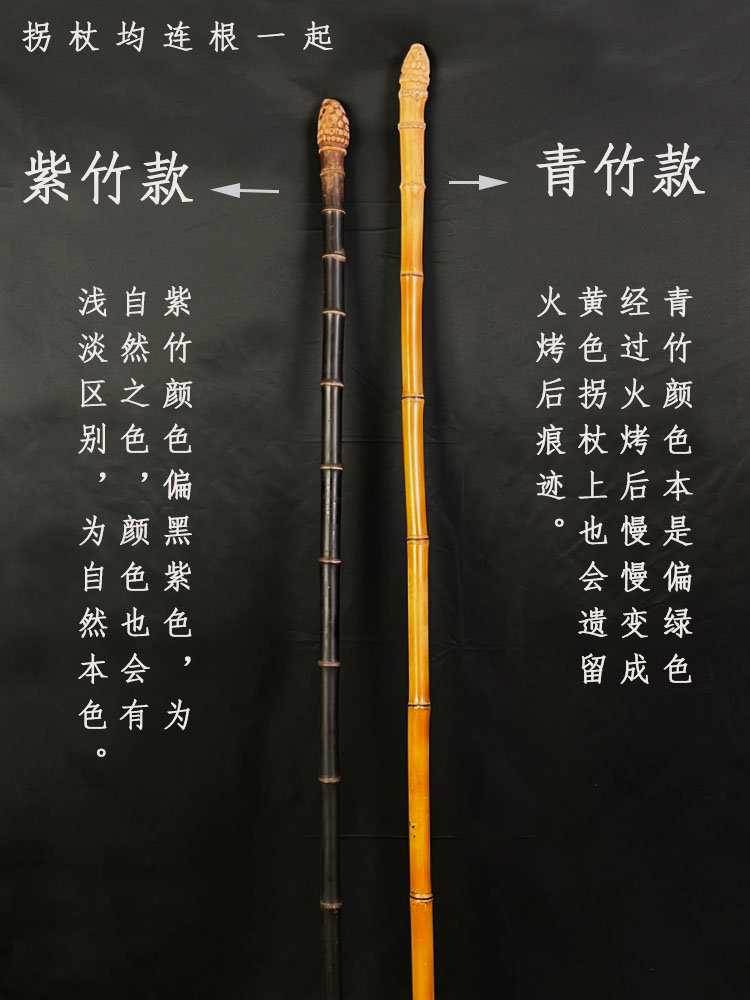 拐杖均连根一起
紫竹款
青竹款
紫竹颜色偏黑紫色，为
自然之色，颜色也会有
浅淡区别，为自然本色。
青竹颜色本是偏绿色
经过火烤后慢慢变成
黄色拐杖上也会遗留
火烤后痕迹。